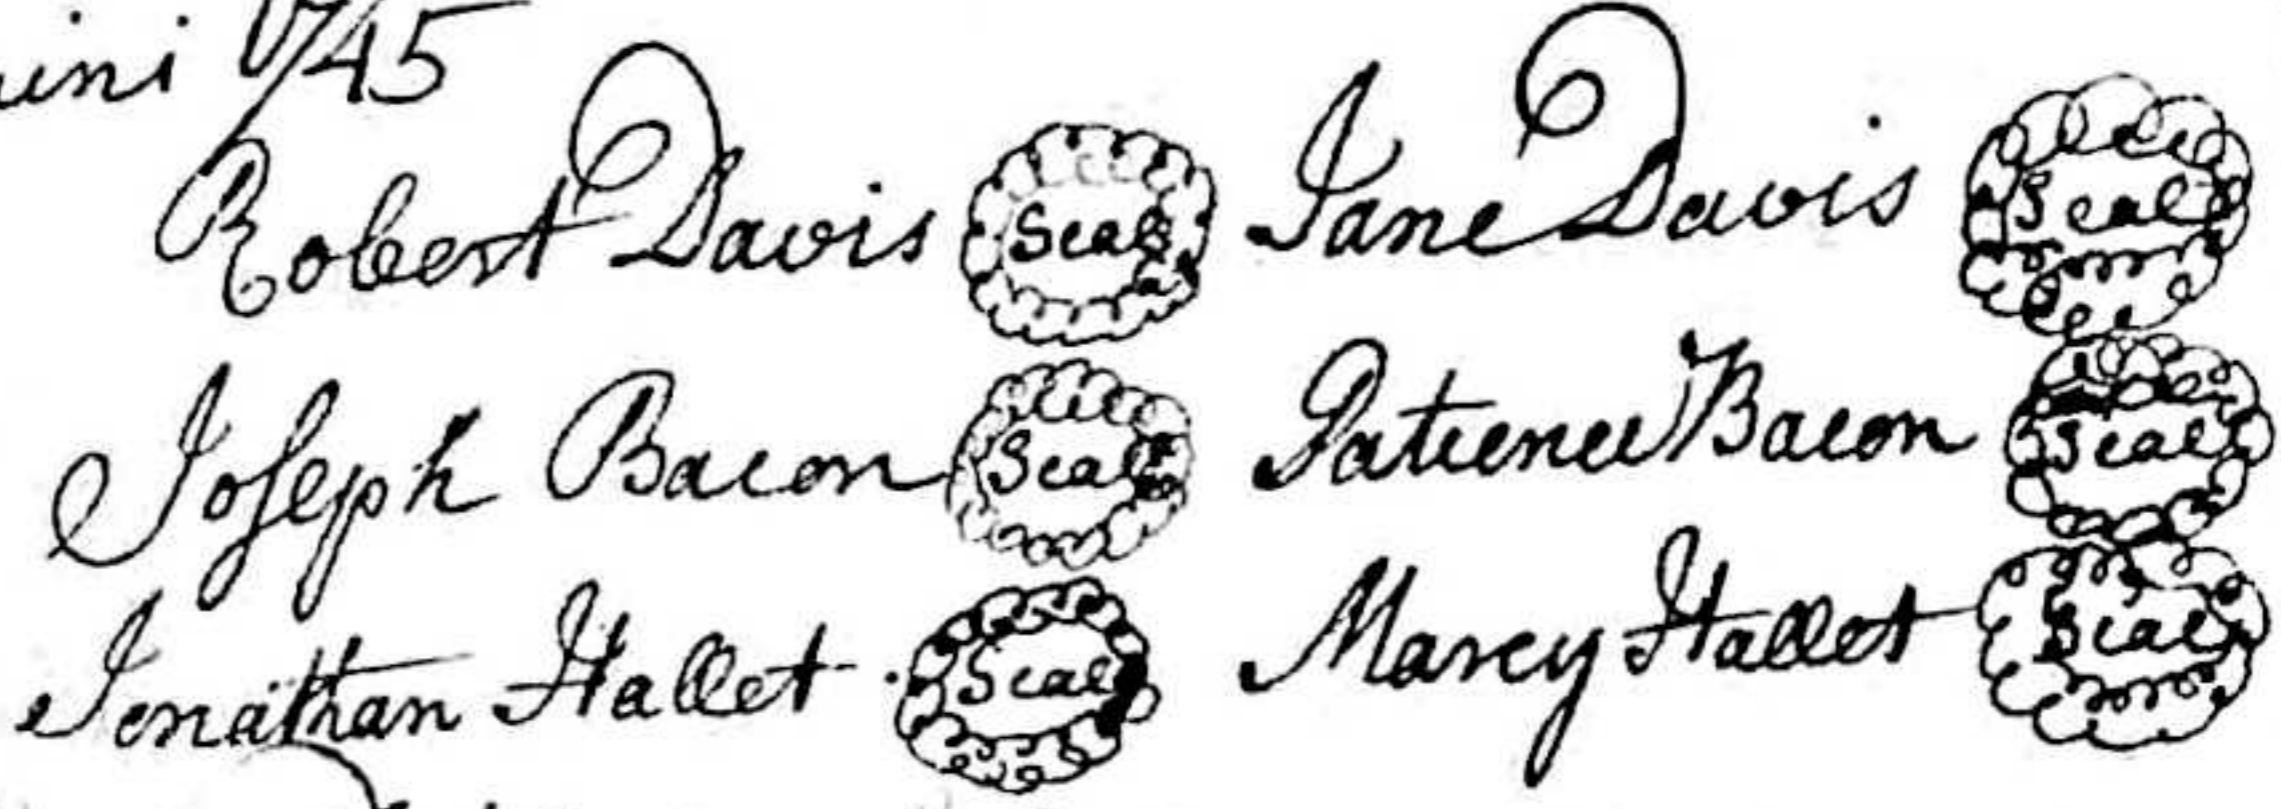 1745
Robert Davis Seal Jane Davis Seal
Joseph Bacon Seal Patience Bacon Seal
Jonathan Hallet Seal Marcy Hallet Seal